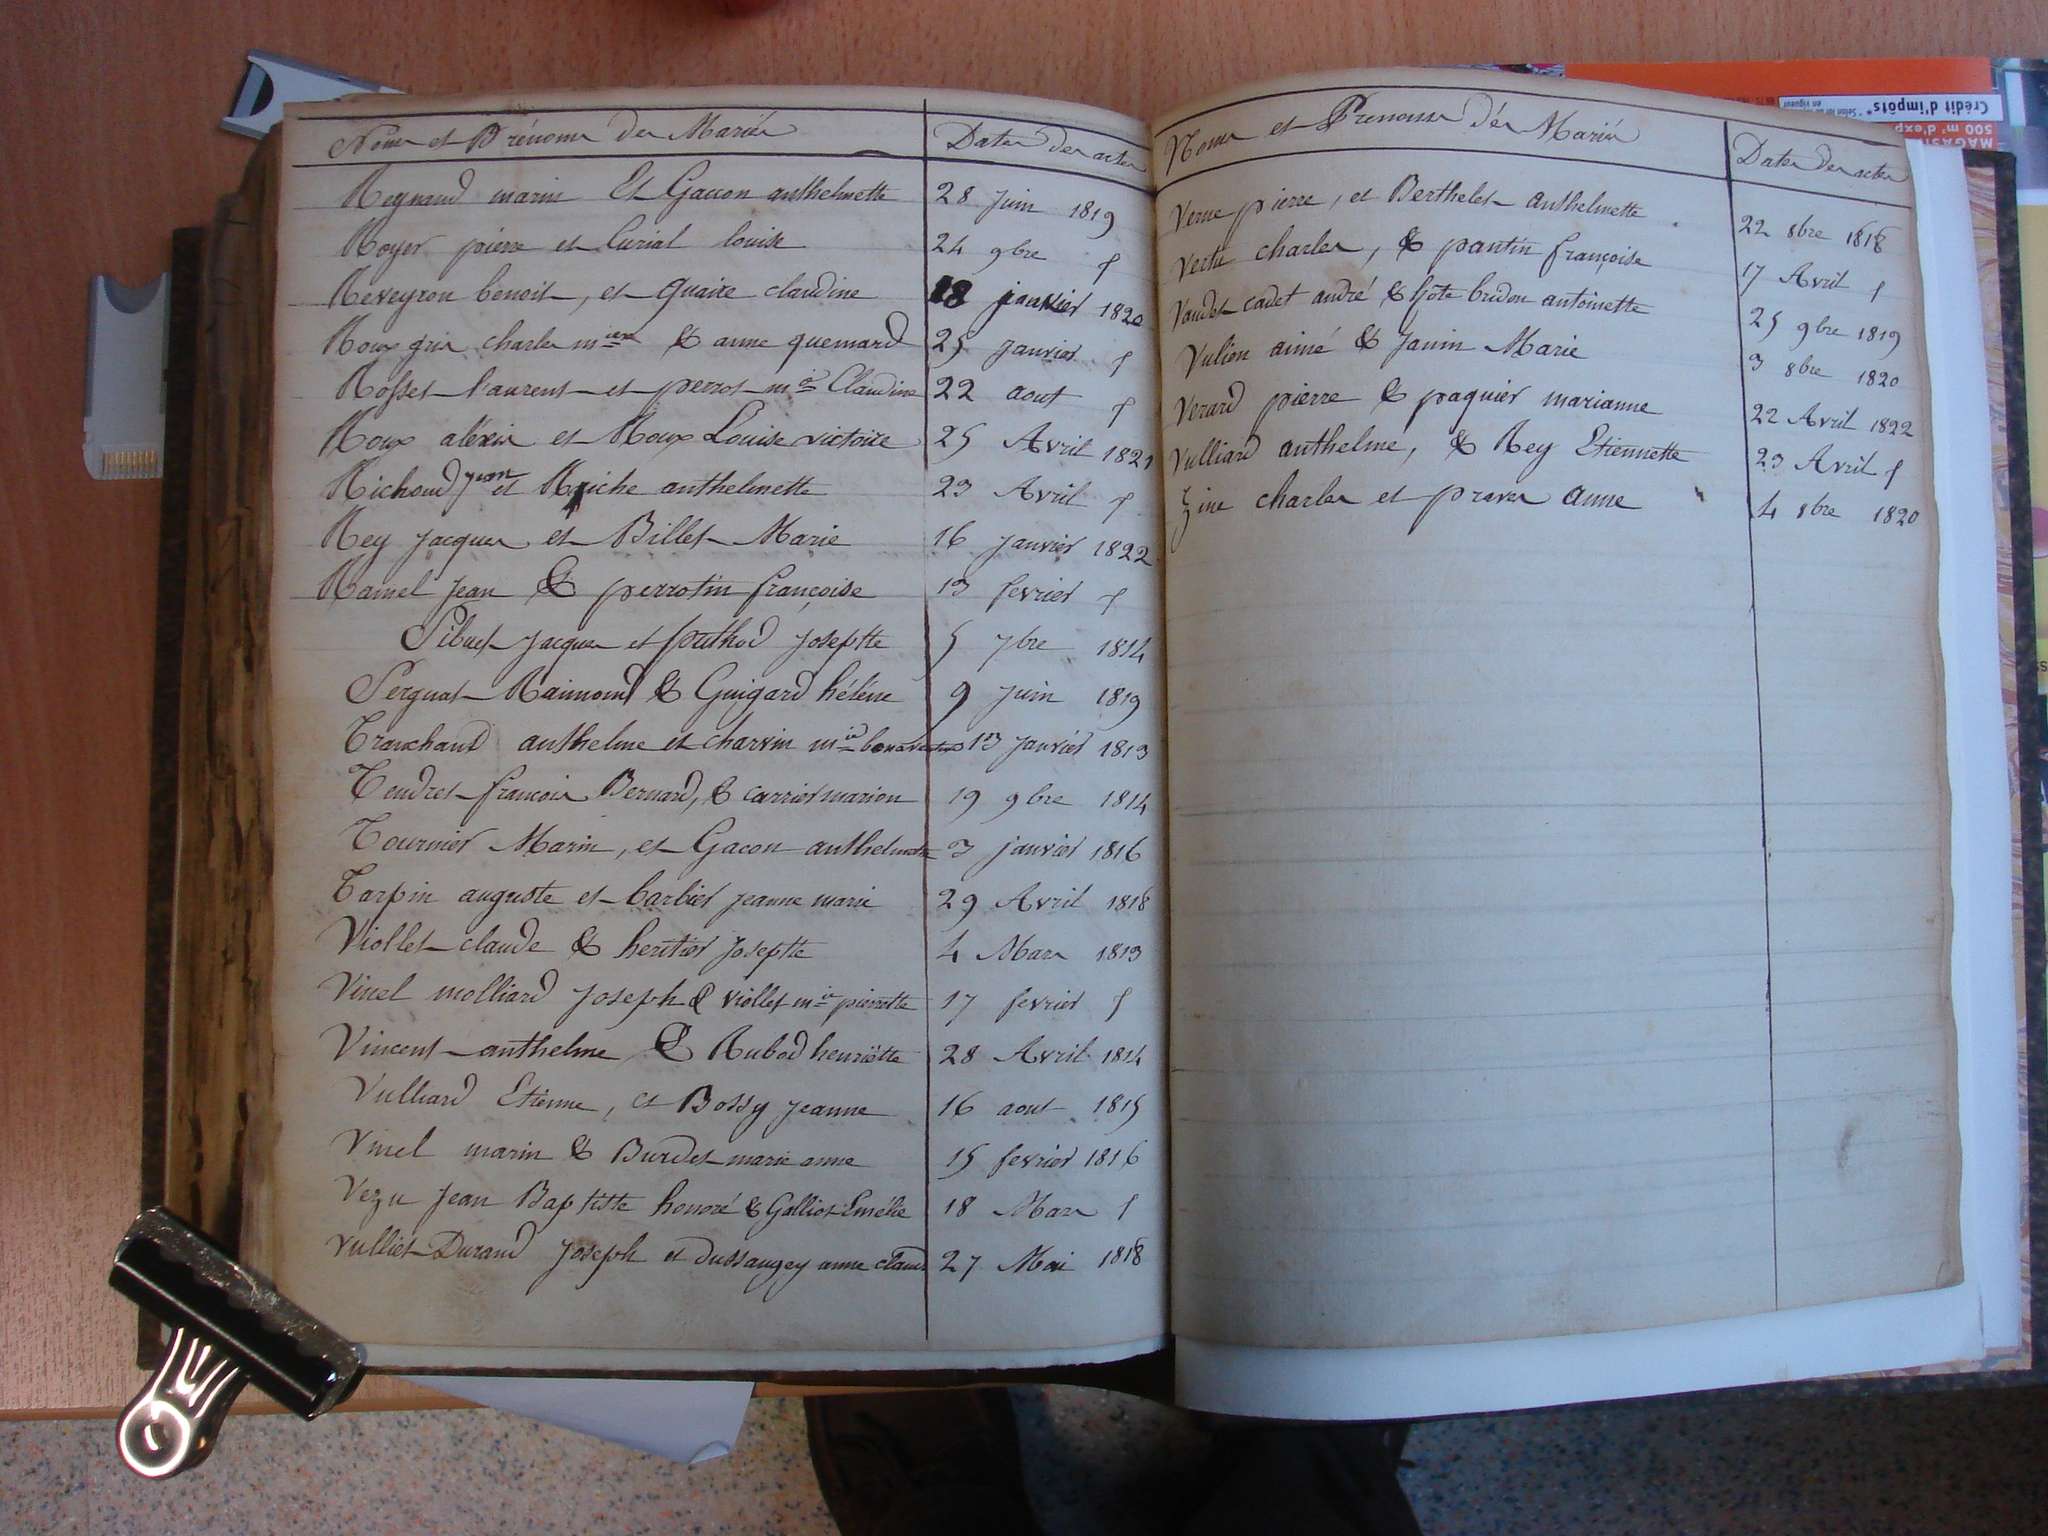 Noms et Prénoms des Mariés
Dates des actes
Regnaud marin Et Gacon anthelmette 28 juin 1819
Royer pierre et Curial louise 24 9bre
Reveyron benoit, et quaire claudine 18 janvier 1820
Roux gris charles mier & anne quemard 25 janvier
Rosset laurent et perrot mie Claudine 22 aout
Roux aléxis et Roux Louise victoire 25 Avril 1821
Richoud jean et Riche anthelmette 23 Avril
Rey jacques et Billet Marie 16 janvier 1822
Ramel jean & perrotin françoise 13 fevrier
Sibuet jacques et puthod josephte 5 7bre 1814
Serguat Raimond & Guigard hélène 9 juin 1819
Tranchand anthelme et charvin mie bonaventure 13 janvier 1813
Tendret françois Bernard, & carrier marion 19 9bre 1814
Tournier Marin, et Gacon anthelmette 3 janvier 1816
Tarpin auguste et barbier jeanne marie 29 Avril 1818
Viollet claude & heritier josephte 4 Mars 1813
Vincel molliard joseph & viollet mie pierrette 17 fevrier
Vincent anthelme & Rubod henriette 28 Avril 1814
Vulliard Etienne, et Bossy jeanne 16 aout 1815
Vincel marin & Burdet marie anne 15 fevrier 1816
Vezu jean Baptiste honoré & Galliot Emélie 18 Mars
Vulliet Durand joseph et dussaugey anne claud 27 Mai 1818
Noms et Prenoms dés Mariés
Dates des actes
Verne pierre, et Berthelet anthelmette 22 8bre 1818
Vertu charles, & pantin françoise 17 Avril
Vaudet cadet andré & hôte bridon antoinette 25 9bre 1819
Vulion aimé & Janin Marie 3 8bre 1820
Verard pierre & paquier marianne 22 Avril 1822
Vulliard anthelme, & Rey Etiennette 23 Avril
Zine charles et praves anne 4 8bre 1820
Crédit d'impôts*
en vigueur
500 m² d'exp